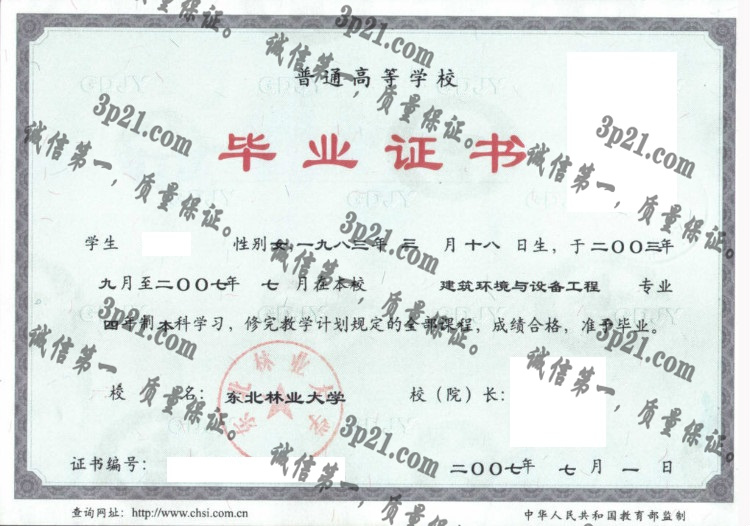 普通高等学校
毕业证书
学生 性别 女，一九八三年 三 月十八 日生，于二〇〇三年
九月至二〇〇七年 七 月在本校 建筑环境与设备工程 专业
四年制本科学习，修完教学计划规定的全部课程，成绩合格，准予毕业。
校 名：东北林业大学 校（院）长：
东北林业大学
证书编号： 二〇〇七年 七 月 一 日
查询网址：http://www.chsi.com.cn 中华人民共和国教育部监制
3p21.com
诚信第一，质量保证。
3p21.com
诚信第一，质量保证。
3p21.com
诚信第一，质量保证。
3p21.com
诚信第一，质量保证。
3p21.com
诚信第一，质量保证。
3p21.com
诚信第一，质量保证。
3p21.com
诚信第一，质量保证。